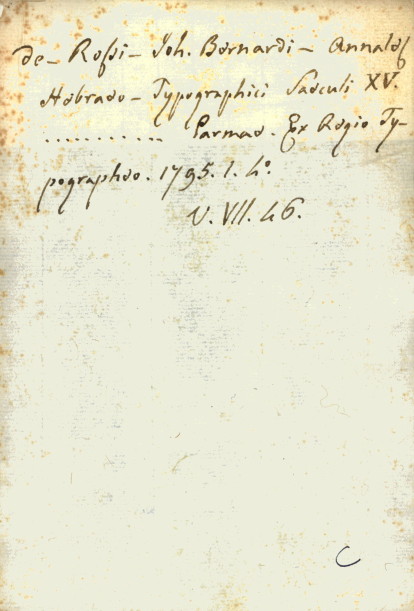 de- Rossi- Joh. Bernardi- Annales
Hebraeo- Typographici Saeculi XV.
............ Parmae. Ex Regio Ty-
pographeo. 1795. 1. 4º.
V. VII. 46.
C